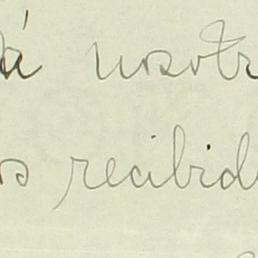 á usotr
os recibid